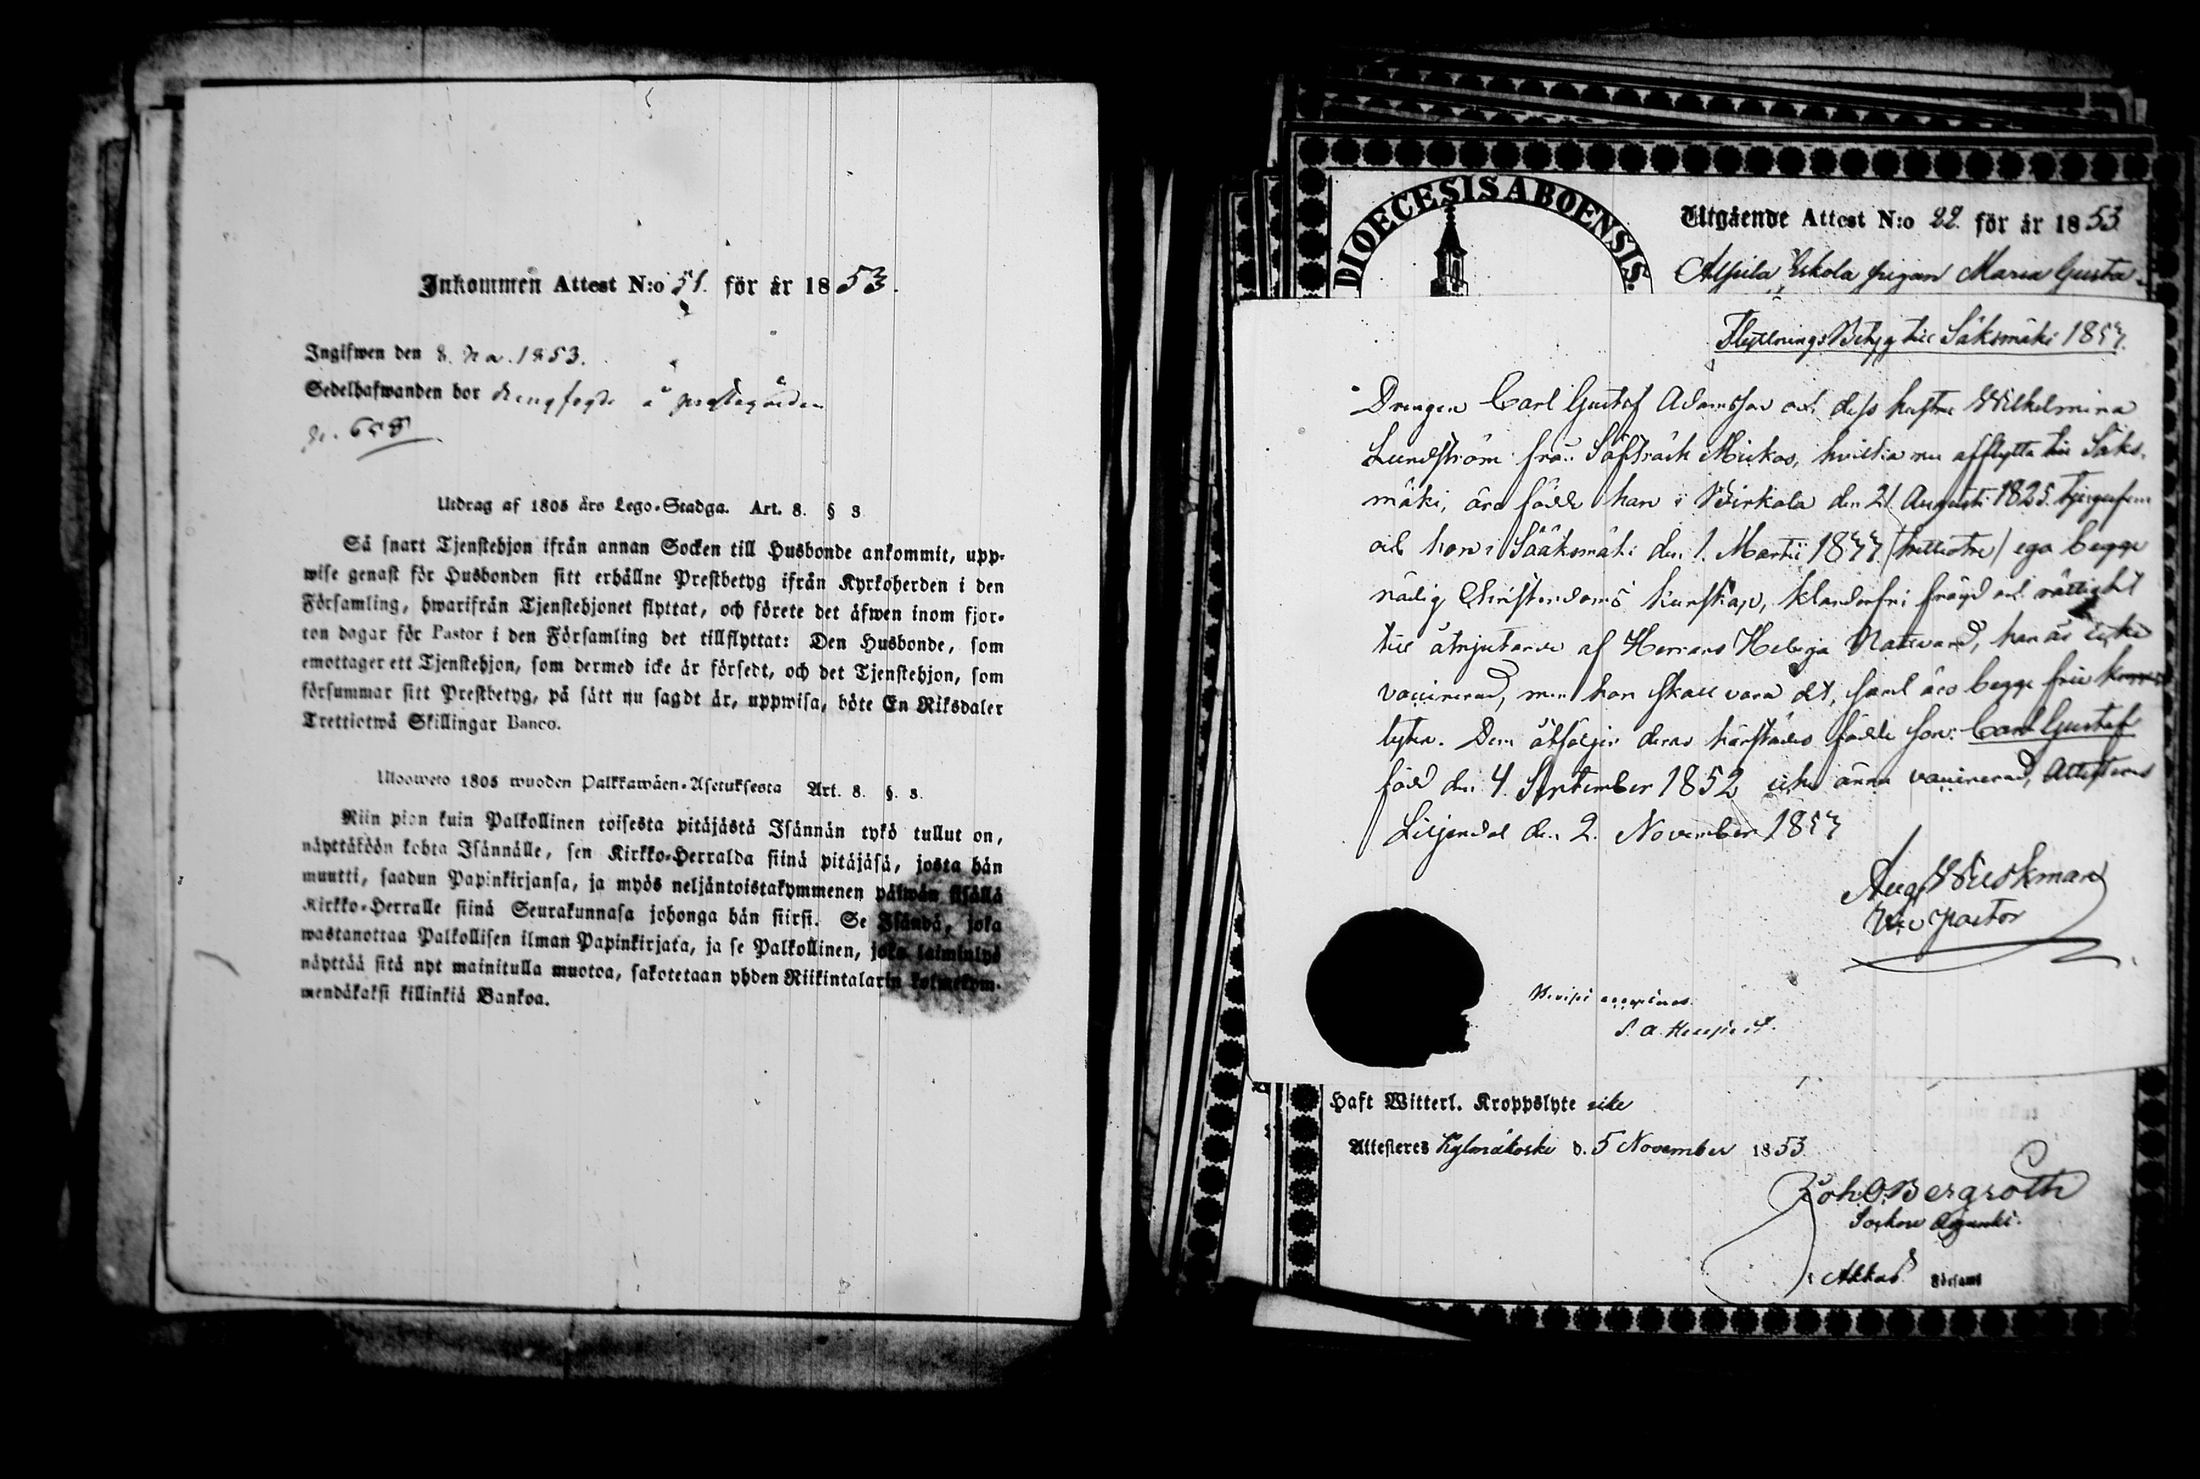 Inkommen Attest N:o 51. för år 1853.
Ingifwen den 8. Na. 1853.
Sedelhafwanden bor drengfogde å prestegården
p. 658
Utdrag af 1805 års Lego-Stadga. Art. 8. § 3
Så snart Tjenstehjon ifrån annan Socken till Husbonde ankommit, upp-
wise genast för Husbonden sitt erhållne Prestbetyg ifrån Kyrkoherden i den
Församling, hwarifrån Tjenstehjonet flyttat, och förete det äfwen inom fjor-
ton dagar för Pastor i den Församling det tillflyttat: Den Husbonde, som
emottager ett Tjenstehjon, som dermed icke är försedt, och det Tjenstehjon, som
försummar sitt Prestbetyg, på sätt nu sagdt är, uppwisa, böte En Riksdaler
Trettiotwå Skillingar Banco.
Ulosweto 1805 wuoden Palkkawäen-Asetuksesta Art. 8. §. 3.
Niin pian kuin Palkollinen toisesta pitäjästä Isännän tykö tullut on,
näyttäköön kohta Isännälle, sen Kirkko-Herralda siinä pitäjäsä, josta hän
muutti, saadun Papinkirjansa, ja myös neljäntoistakymmenen päiwän sisällä
Kirkko-Herralle siinä Seurakunnasa johonga hän siirsi. Se Isändä, joka
wastanottaa Palkollisen ilman Papinkirjata, ja se Palkollinen, joka laiminlyö
näyttää sitä nyt mainitulla muotoa, sakotetaan yhden Riikintalarin kolmekym-
mendäkaksi killinkiä Bankoa.
DIOECESIS ABOENSIS.
Utgående Attest N:o 22. för år 1853
Eskola pigan Maria Gusta
Flyttnings Betyg till Säksmäki 1853.
Drengen Carl Gustaf Adamsson och dess hustru Wilhelmina
Lundström från Säfträsk Mickos, hvilka nu afflytta till Säks-
mäki, äro födde han i Birkala den 21 Augusti 1825 tjugufem
och hon i Sääksmäki den 1. Martii 1833 (trettiotre) ega begge
nödig Christendoms kunskap, klanderfri frejd och rättighet
till åtnjutande af Herrans Heliga Nattvard, han är icke
vaccinerad, men hon skall vara det, samt äro begge fria
lyten. Dem åtföljer deras härstädes födde son: Carl Gustaf
född den 4. September 1852 icke ännu vaccinerad, Attesteras
Liljendal den 2. November 1853
Aug. Wuskman
Vice pastor
Haft Witterl. Kroppslyte icke
Attesteres Kylmäkoski d. 5 November 1853.
Joh. O. Bergroth
Sockne Adjunkt.
i Akkas Församl